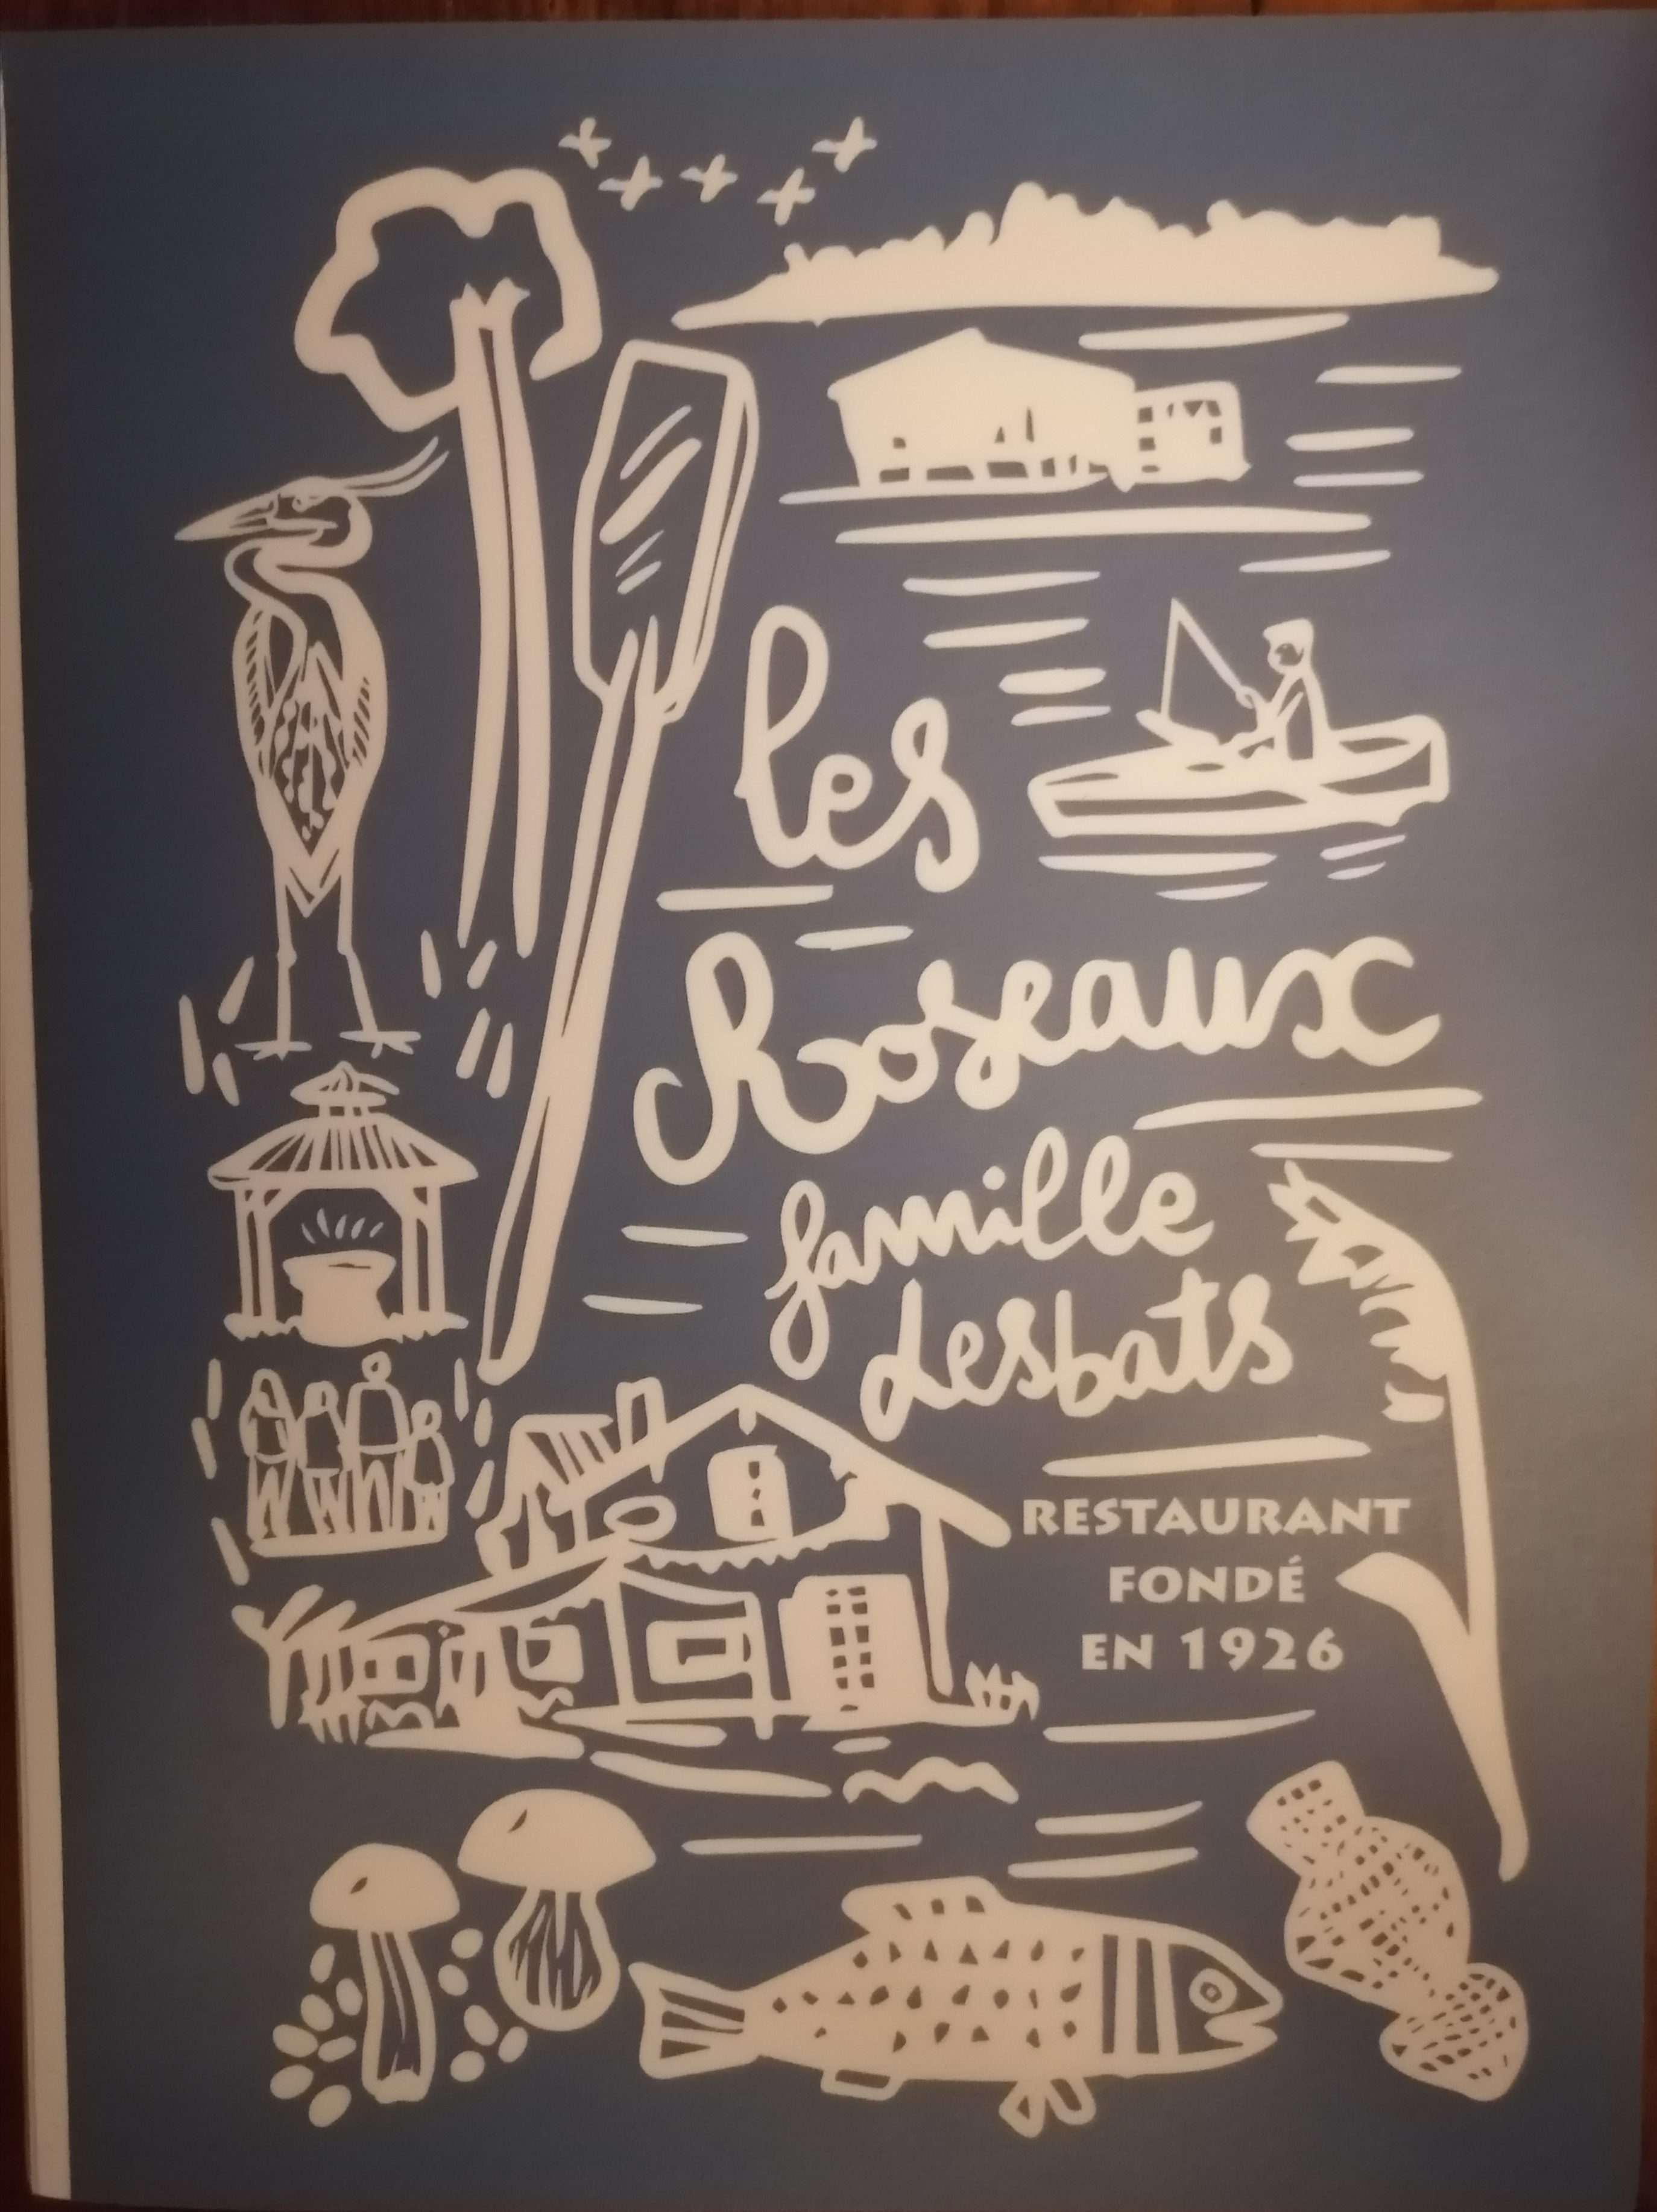 les
Roseaux
famille
desbats
RESTAURANT
FONDÉ
EN 1926